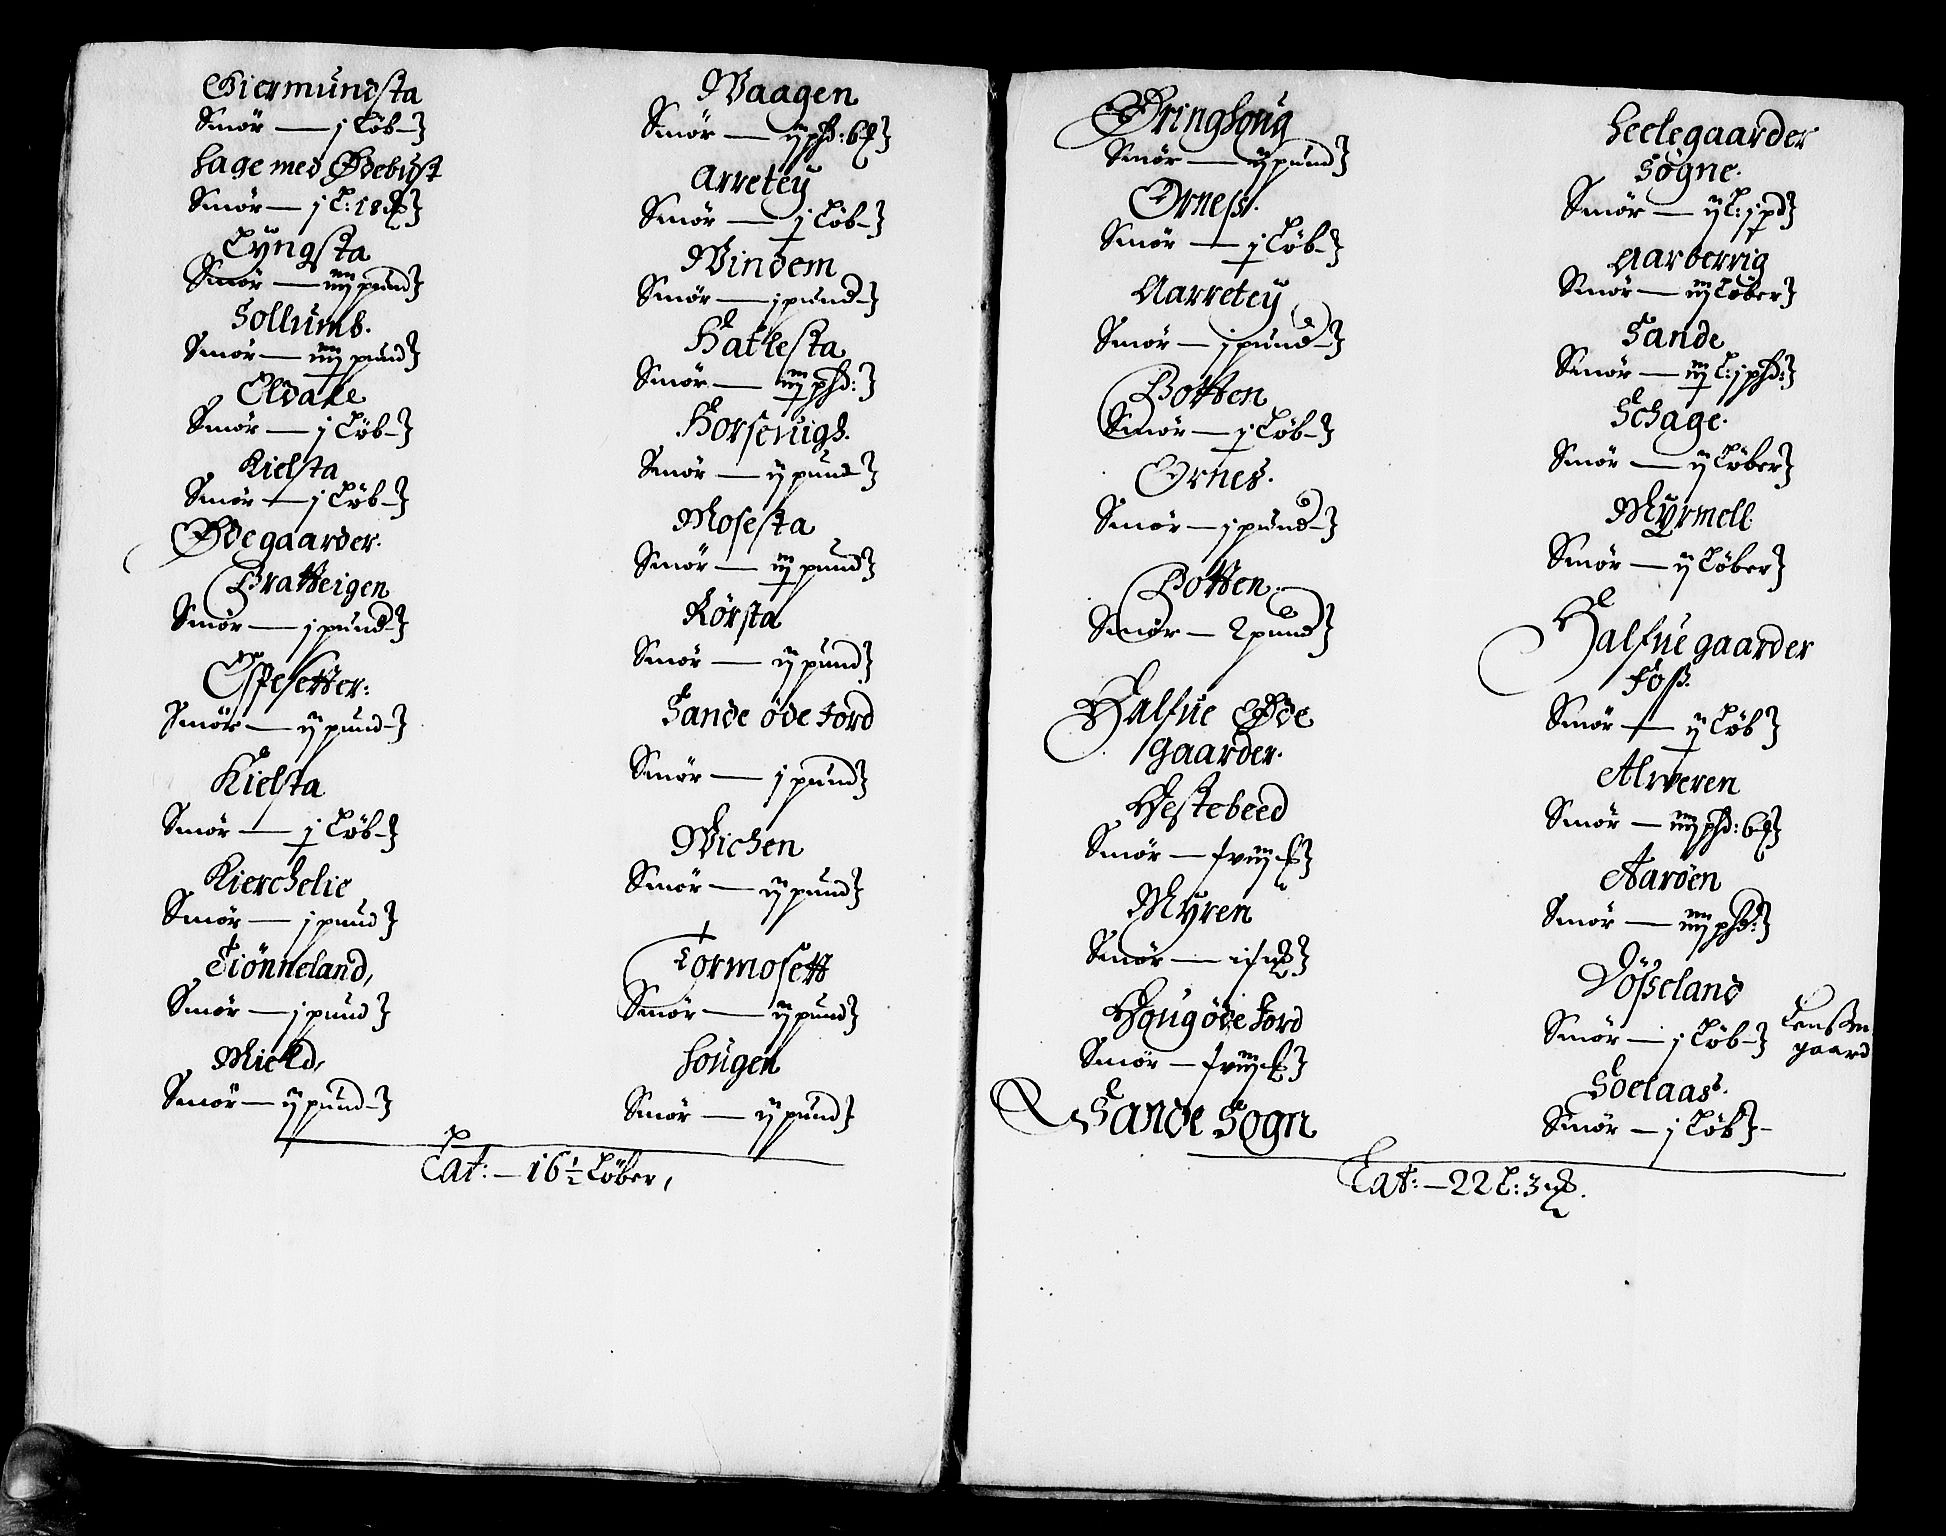 Giermundsta
Smör — j Löb
hage med Ødebust
Smör — j L: 18 ℔
Lyngsta
Smör — iij pund
Sollumb.
Smör — iiij pund
Oldale
Smör — j Löb
Kielsta
Smör — j Löb
Ødegaarder.
Bratteigen
Smör — j pund
Espesetter:
Smör — ij pund
Kielsta
Smör — j Löb
Kierchelie
Smör — j pund
Tiönneland,
Smör — j pund
Mield,
Smör — ij pund
Waagen
Smör — ij phd: 6 ℔
Arretey
Smör — j Löb
Windem
Smör — j pund
Hatlesta
Smör — iiij phd:
Horseuigh.
Smör — ij pund
Mosesta
Smör — iij pund
Rörsta
Smör — ij pund
Sande öde Jord
Smör — j pund
Wichen
Smör — ij pund
Tormosett
Smör — ij pund
hougen
Smör — ij pund
Lat: — 16 1/2 Löber,
Bringhoug
Smör — ij pund
Orness.
Smör — j Löb
Aarretey
Smör — j pund
Botten
Smör — j Löb
Ornes.
Smör — j pund
Botten.
Smör — 2 pund
Halfue Øde
gaarder.
Hestebeed
Smör — xviij ℔
Myren
Smör — ix ℔
Hougöde Jord
Smör — xviij ℔
Sande Sogn
heelegaarder
Sögne.
Smör — ij L: j pd
Aarberrig
Smör — iij Löber
Sande
Smör — iij L: j phd:
Schage.
Smör — ij Löber
Myrmell
Smör — ij Löber
Halfue gaarder
Foss.
Smör — ij Löb
Alrveren
Smör — iiij phd: 6 ℔
Aaröen
Smör — iiij phd:
Dösseland
Smör — j Löb
Lensm
gaard
Soelaas.
Smör — j Löb
Lat: — 22 L: 3 ℔.